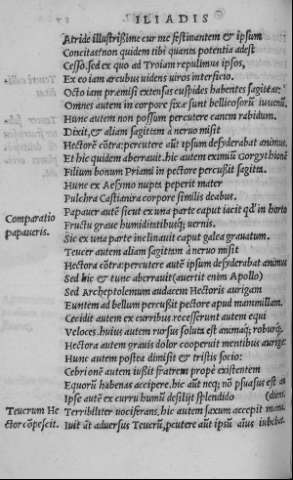 ILIADIS
Atride illustrißime cur me festinantem & ipsum
Concitas? non quidem tibi quanta potentia adest
Cesso. sed ex quo ad Troiam repulimus ipsos,
Ex eo iam arcubus uidens uiros interficio.
Octo iam præmisi extensas cuspides habentes sagittas:
Omnes autem in corpore fixæ sunt bellicosorũ iuuenũ,
Hunc autem non possum percutere canem rabidum.
Dixit, & aliam sagittam à neruo misit
Hectorẽ cõtra: percutere aũt ipsum desyderabat animus.
Et hic quidem aberrauit. hic aut eximiũ Gorgythionẽ
Filium bonum Priami in pectore percußit sagitta.
Hunc ex Aesymo nupta peperit mater
Pulchra Castianira corpore similis deabus.
Papauer autẽ sicut ex una parte caput iacit qđ in horto
Comparatio
papaueris.
Fructu graue humiditatibusq; uernis.
Sic ex una parte inclinauit caput galea grauatum.
Teucer autem aliam sagittam à neruo misit
Hectora cõtra: percutere autẽ ipsum desyderabat animus
Sed hic & tunc aberrauit (auertit enim Apollo)
Sed Archeptolemum audacem Hectoris aurigam
Euntem ad bellum percußit pectore apud mammillam.
Cecidit autem ex curribus recesserunt autem equi
Veloces. huius autem rursus soluta est animaq; roburq;
Hectora autem grauis dolor cooperuit mentibus aurigæ:
Hunc autem postea dimisit & tristis socio:
Cebrionẽ autem iußit fratrem propè existentem
Equorũ habenas accipere. hic aũt neq; nõ psuasus est
Ipse autẽ ex curru humũ desilijt splendido
Teucrum He
ctor cõpescit.
Terribiliter uociferans. hic autem saxum accepit manu,
Iuit aũt aduersus Teucrũ, pcutere aũt ipsũ aĩus iubebat.